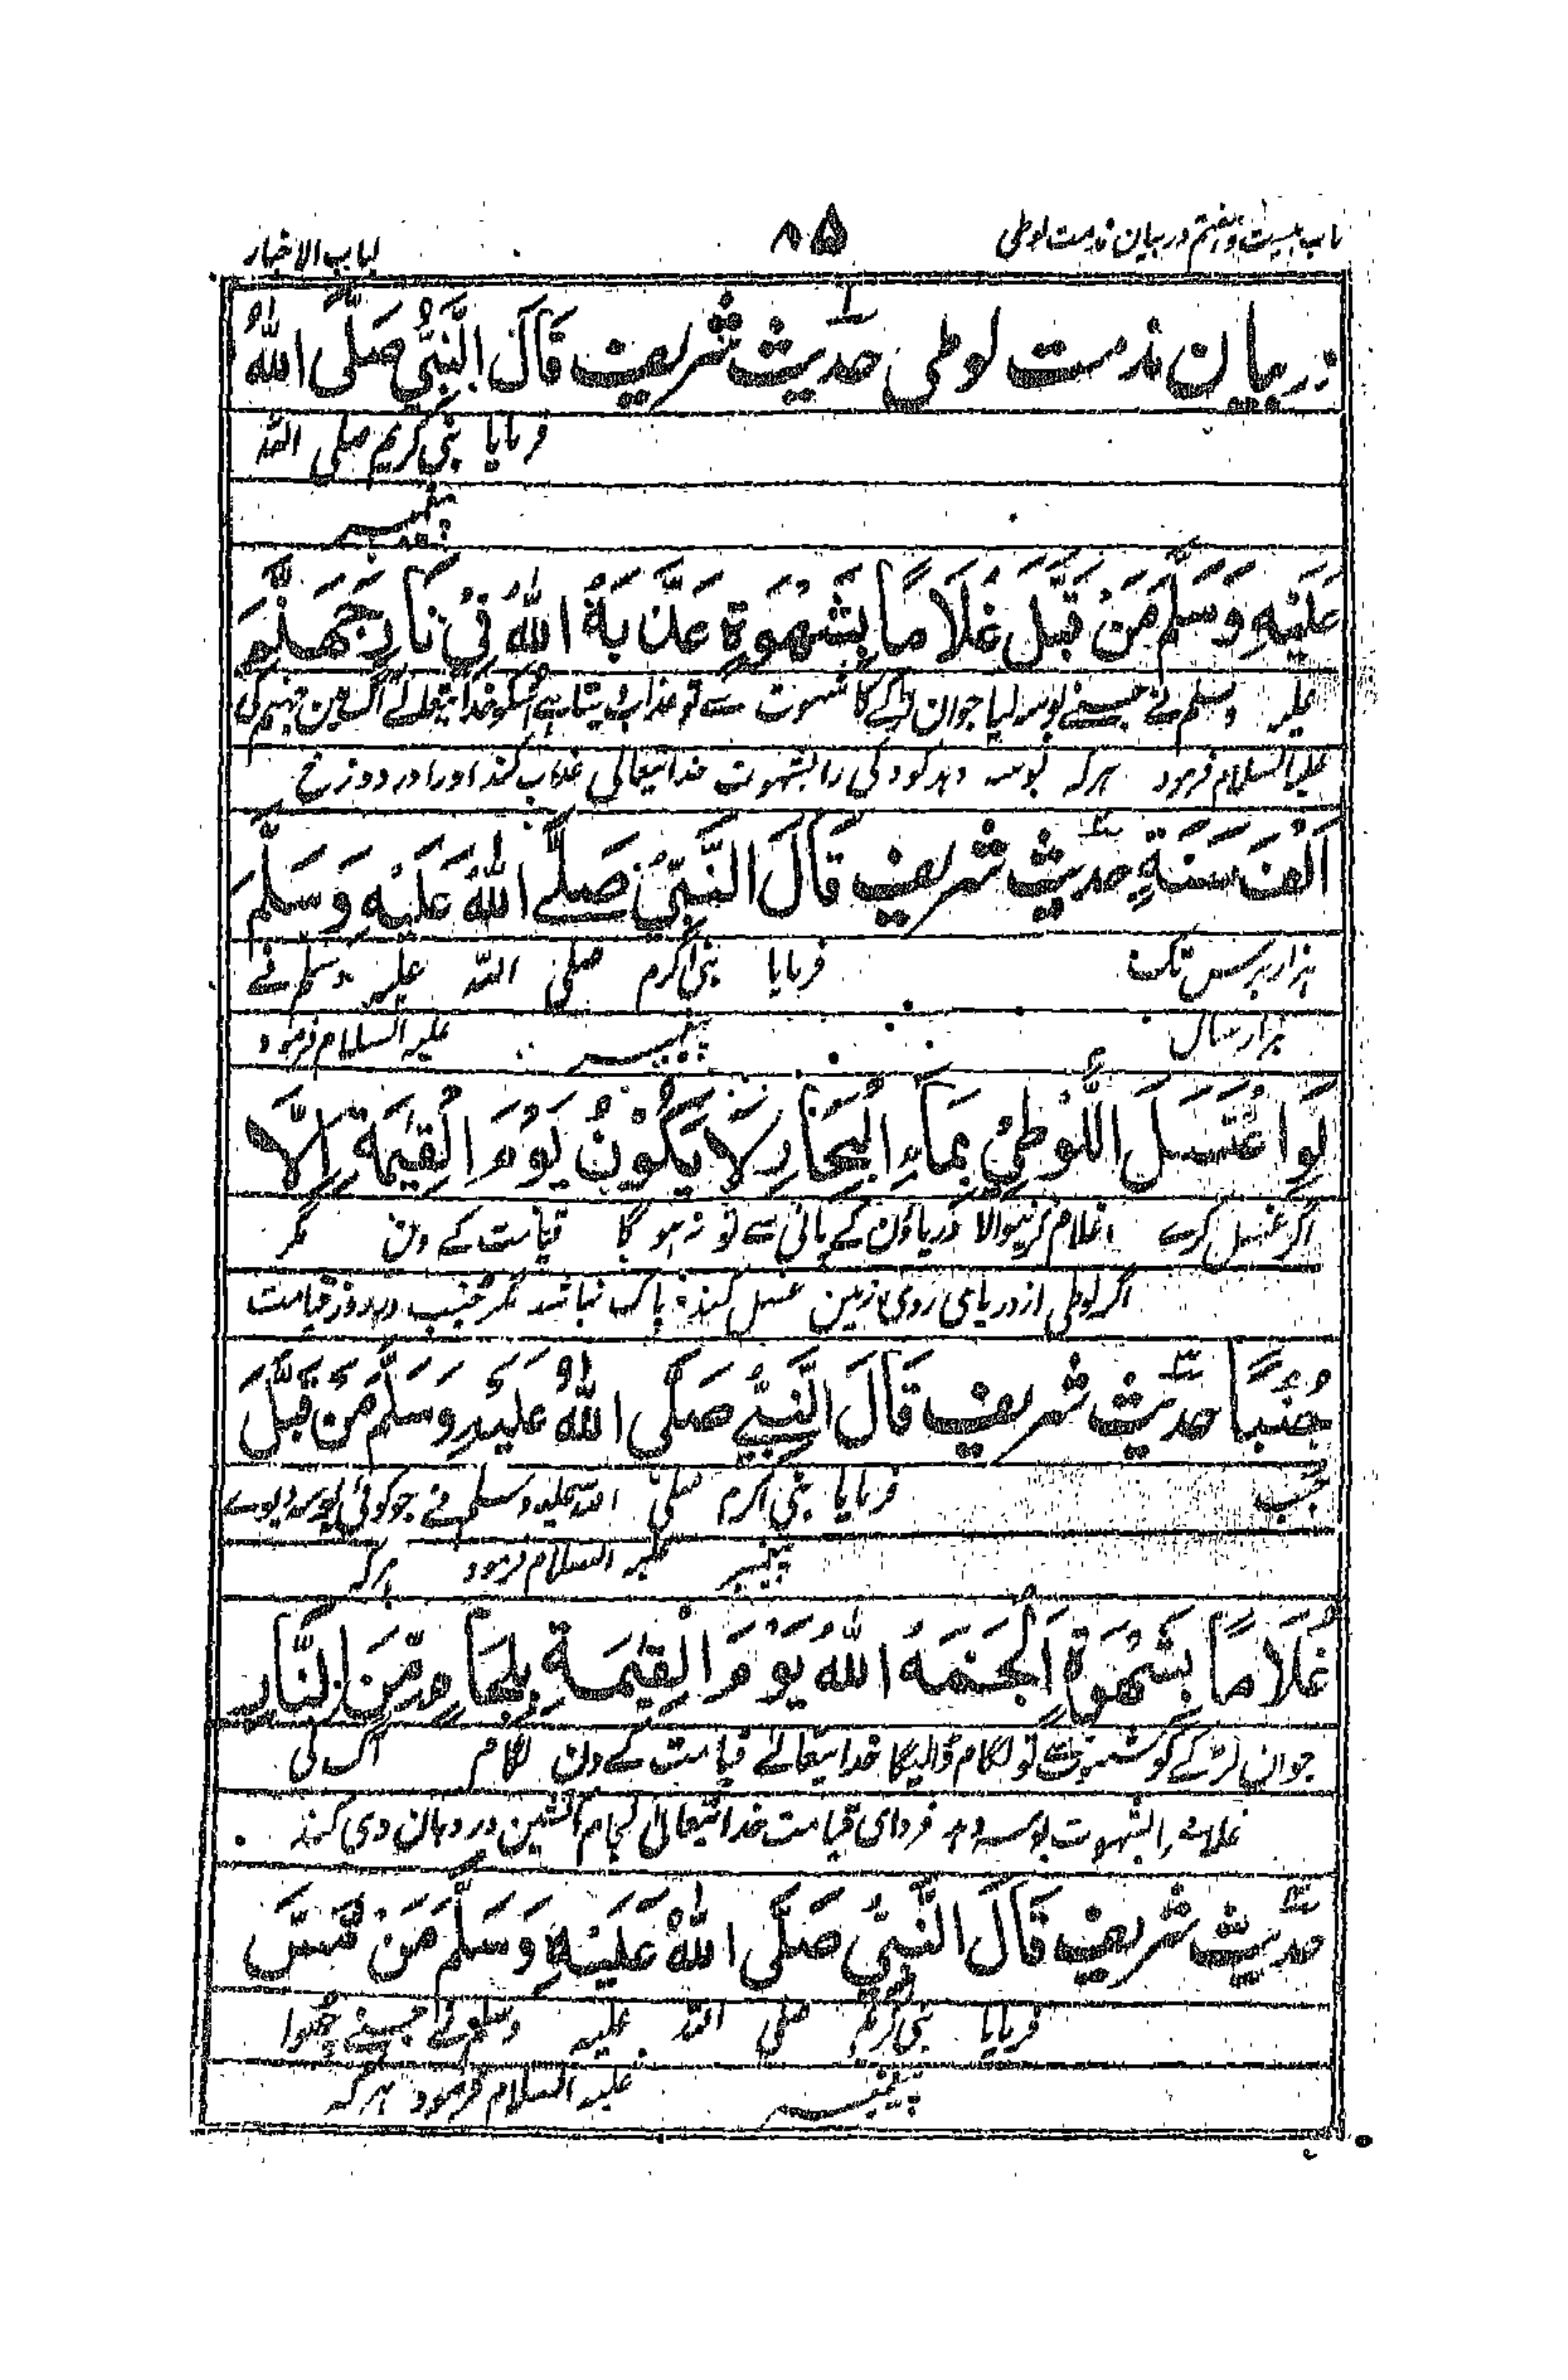 باب بیست و هفتم در بیان مذمت لوطی ۸۵ لباب الاخبار
در بیان مذمت لوطی حدیث شریف قَالَ النَّبِیُّ صَلَّی اللّٰهُ
فرمایا نبی کریم صلی اللہ
پیغمبر
عَلَیْهِ وَسَلَّمَ مَنْ قَبَّلَ غُلَامًا بِشَهْوَةٍ عَذَّبَهُ اللّٰهُ فِیْ نَارِ جَهَنَّمَ
علیہ وسلم نے جسنے بوسہ لیا جوان لڑکے کا شہوت سے تو عذاب دیتا ہے اسکو خدایتعالے آگ مین جہنم کی
علیہ السلام فرمود ہرکہ بوسہ دہد کودکی را بشہوت خدایتعالی عذاب کند اورا در دوزخ
اَلْفَ سَنَةٍ حدیث شریف قَالَ النَّبِیُّ صَلَّے اللّٰهُ عَلَیْهِ وَسَلَّمَ
ہزار برس تک فرمایا نبی اکرم صلی اللہ علیہ وسلم نے
ہزار سال پیغمبر علیہ السلام فرمود
لَوِ اغْتَسَلَ اللُّوْطِیُّ بِمَاءِ الْبِحَارِ لَا یَکُوْنُ یَوْمَ الْقِیٰمَةِ اِلَّا
اگر غسل کرے اغلام کرنیوالا دریاؤن کے پانی سے تو نہ ہو گا قیامت کے دن مگر
اگر لوطی از دریای روی زمین غسل کند پاک نباشد مگر جنب در روز قیامت
جُنُبًا حدیث شریف قَالَ النَّبِیُّ صَلَّی اللّٰهُ عَلَیْهِ وَسَلَّمَ مَنْ قَبَّلَ
جنب فرمایا نبی اکرم صلی اللہ علیہ وسلم نے جو کوئی بوسہ دیوے
پیغمبر علیہ السلام فرمود ہرکہ
غُلَامًا بِشَهْوَةٍ اَلْجَمَهُ اللّٰهُ یَوْمَ الْقِیٰمَةِ بِلِجَامٍ مِّنَ النَّارِ
جوان لڑکے کو شہوت سے تو لگام ڈالیگا خدایتعالے قیامت کے دن لگام آگ کی
غلامے را بشہوت بوسہ دہد فردای قیامت خدایتعالی لجام آتشین در دہان وی کند
حدیث شریف قَالَ النَّبِیُّ صَلَّی اللّٰهُ عَلَیْهِ وَسَلَّمَ مَنْ مَّسَّ
فرمایا نبی کریم صلی اللہ علیہ وسلم نے جسنے چھوا
پیغمبر علیہ السلام فرمود ہرکہ